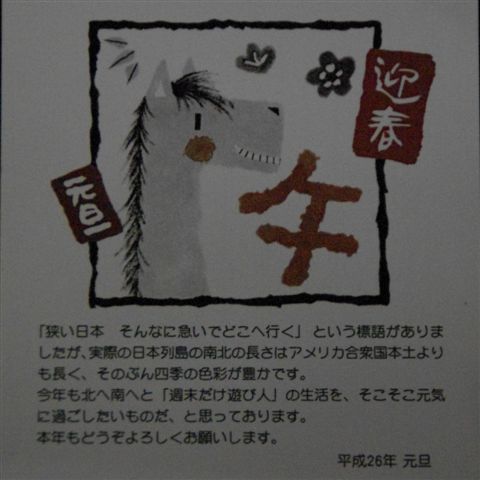 迎春
午
元旦
「狭い日本　そんなに急いでどこへ行く」という標語がありま
したが、実際の日本列島の南北の長さはアメリカ合衆国本土より
も長く、そのぶん四季の色彩が豊かです。
今年も北へ南へと「週末だけ遊び人」の生活を、そこそこ元気
に過ごしたいものだ、と思っております。
本年もどうぞよろしくお願いします。
平成26年 元旦